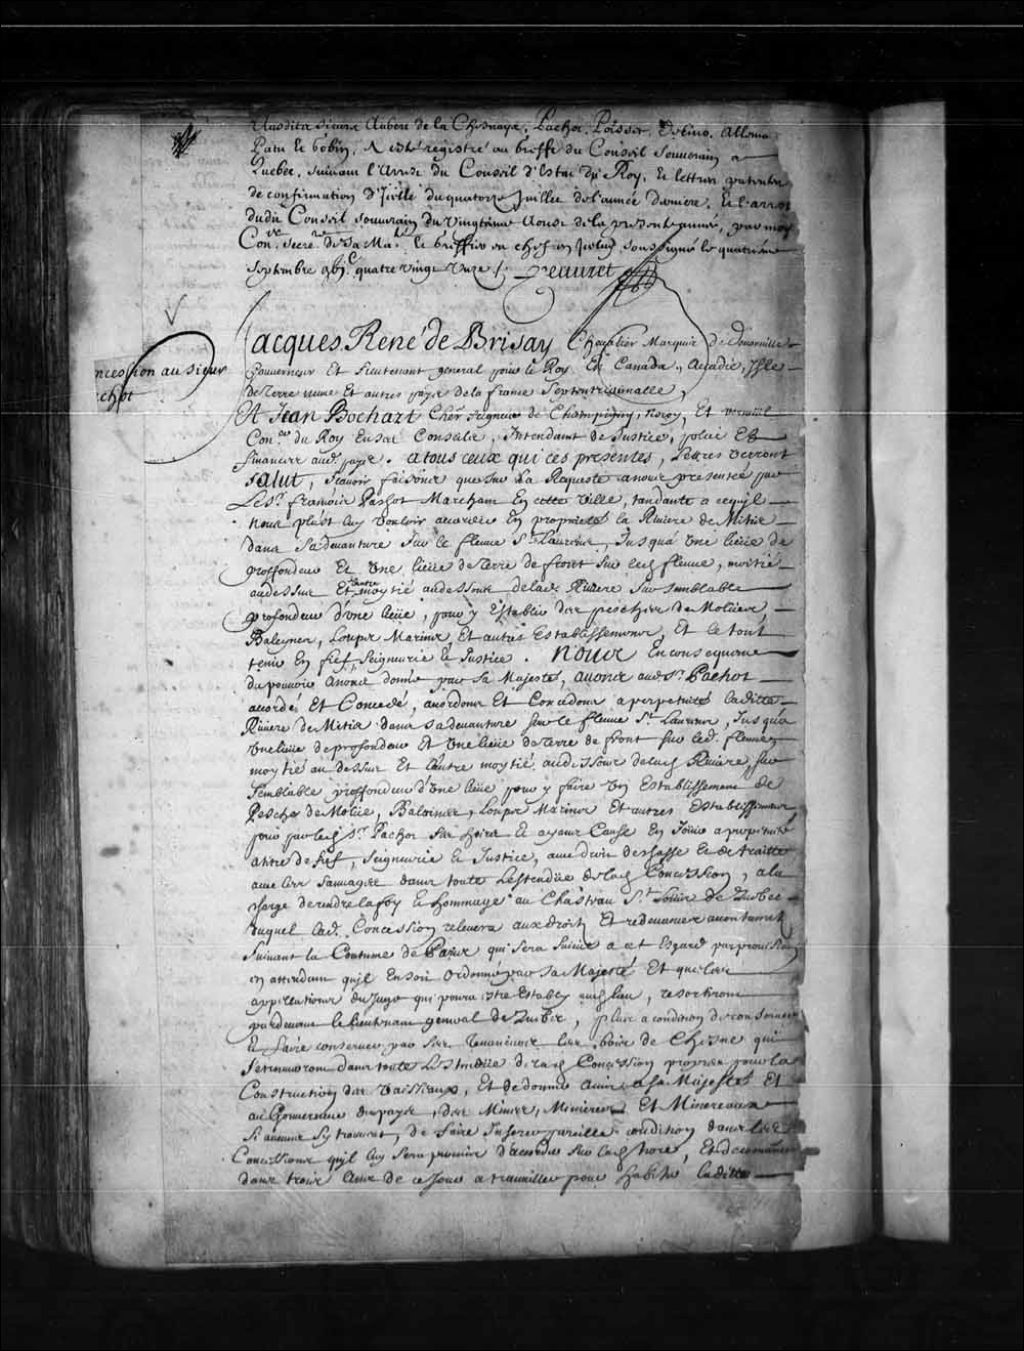 Aubert de la Chesnaye, Pachot,
Patu le bobin, A esté registré au Greffe du Conseil Souverain a
Quebec, suivant l'Arrest du Conseil d'Estat du Roy, et lettres patentes
de confirmation d'Icelle du quatorze Juillet de l'année derniere, et l'arrest
dudit Conseil souverain du vingtieme Aoust de la presente année, par moy
Con.er secre.re de sa Ma.té et Greffier en chef en Iceluy soussigné le quatriéme
Septembre gbj.c quatre vingt Unze ./. Peuvret
Concession au sieur
chot
Jacques René de Brisay Chevalier Marquis de Denonville
Gouverneur Et Lieutenant general pour le Roy En Canada, Acadie, Isle
de Terre neuve Et autres pays de la france Septentrionalle,
Et Jean Bochart Cher seigneur de Champigny, Noroy, Et verneüil
Con.er du Roy En ses Conseils, Intendant de Justice, police Et
finances aud. pays. a tous ceux qui ces presentes, Lettres verront
Salut, scavoir faisons que sur La Requeste a nous presentée par
Le S.r francois Pachot Marchand En cette ville, tendante a ce quil
Nous plust luy vouloir accorder En proprieté la Riviere de Mitis
dans sa devanture sur le fleuve S.t Laurens, Jusqu'a Une lieüe de
proffondeur Et Une lieüe de terre de front sur led. fleuve, moitié
au dessus Et l'autre moytié au dessous de lad. Riviere sur semblable
profondeur d'une lieüe, pour y Establir des pesches de Molües,
Baleynes, Loups Marins, Et autres Establissemens, Et le tout
tenir En fief Seigneurie et Justice. Nous En consequence
du pouvoir A nous donné par Sa Majesté, avons aud. S.r Pachot
acordé Et Concedé, acordons Et Concedons a perpetuité laditte
Riviere de Mitis dans sa devanture sur le fleuve S.t Laurens, Jusqua
Une lieüe de profondeur Et Une lieüe de terre de front sur led. fleuve
moytié au dessus Et l'autre moytié au dessous de lad. Riviere, sur
semblable proffondeur d'Une lieüe pour y faire Un Establissement de
Pesche de Molüe, Baleines, Loups Marins Et autres Establissemens
pour par led. S.r Pachot ses hoirs et ayans Cause En Joüir a perpetuité
a titre de fief, Seigneurie et Justice, avec droit de chasse et de traitte
avec les sauvages dans toute L'estendüe de lad. Concession, a la
charge de rendre la foy et hommage au Chasteau S.t Louis de Quebec
duquel lad. Concession relevera aux droits Et redevances accoutumez
Suivant la Coutume de Paris qui sera suivie a cet Esgard par provision
en attendant quil En soit ordonné par sa Majesté Et que les
appellations du Juge qui poura estre Estably aud. lieu, resortiront
pardevant le lieutenant general de Quebec, plus a condition de conserver
Et faire conserver par ses Tenanciers les bois de Chesne qui
se trouveront dans toute L'estendüe de lad. Concession propres pour la
Construction des Vaisseaux, Et de donner avis a Sa Majesté Et
au Gouverneur du pays, des Mines, Minieres Et Mineraux
Si aucuns s'y trouvent, de faire Inserer pareille condition dans les
Concessions quil luy sera permis d'acorder sur lad. terre, Et de commencer
dans trois Ans de ce Jour a travailler pour habiter laditte